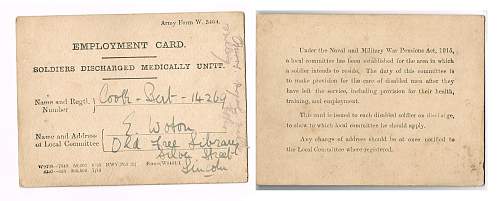 Army Form W. 3464.
EMPLOYMENT CARD.
SOLDIERS DISCHARGED MEDICALLY UNFIT.
Name and Regtl. Number
Cook - Bert - 14269
Name and Address of Local Committee
E. Woton
Old Free Library
Silver Street
Lincoln
Under the Naval and Military War Pensions Act, 1915,
a local committee has been established for the area in which
a soldier intends to reside. The duty of this committee is
to make provision for the care of disabled men after they
have left the service, including provision for their health,
training, and employment.
This card is issued to each disabled soldier on discharge,
to show to which local committee he should apply.
Any change of address should be at once notified to
the Local Committee where registered.